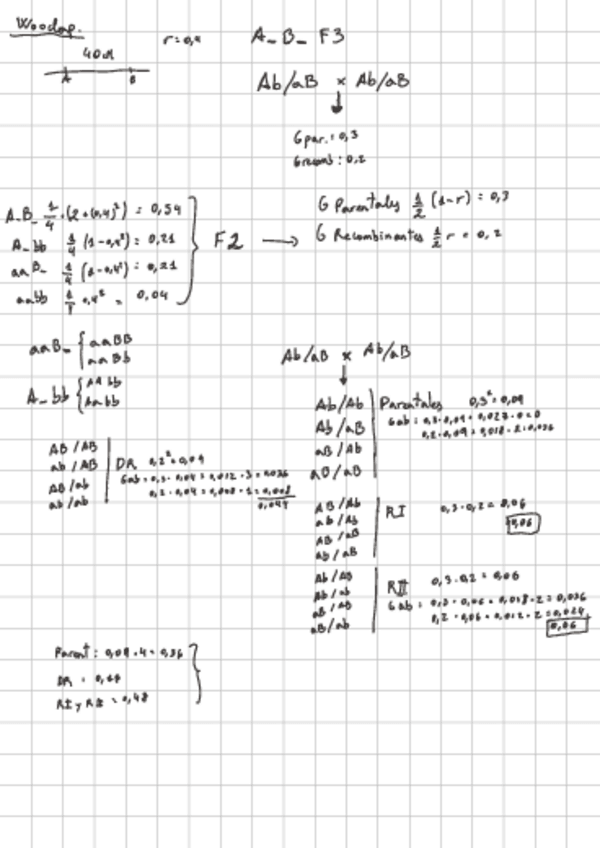 Wooclap.
40cM
A B
r = 0,4
A_B_ F3
Ab/aB × Ab/aB
G par.: 0,3
G recomb: 0,2
A_B_ 1/4 · (2+(0,4)²) = 0,54
A_bb 1/4 (1-0,4²) = 0,21
aaB_ 1/4 (1-0,4²) = 0,21
aabb 1/4 0,4² = 0,04
F2
G Parentales 1/2 (1-r) = 0,3
G Recombinantes 1/2 r = 0,2
aaB_ { aaBB
aaBb
A_bb { AAbb
Aabb
Ab/aB × Ab/aB
Ab/Ab
Ab/aB
aB/Ab
aB/aB
Parentales 0,3² = 0,09
Gab: 0,3·0,09 = 0,027·0 = 0
0,2·0,09 = 0,018·2 = 0,036
AB/AB
ab/AB
AB/ab
ab/ab
DR 0,2² = 0,04
Gab = 0,3·0,04 = 0,012·3 = 0,036
0,2·0,04 = 0,008·1 = 0,008
0,044
AB/Ab
ab/Ab
AB/aB
ab/aB
RI 0,3·0,2 = 0,06
0,06
Ab/AB
Ab/ab
aB/AB
aB/ab
RII 0,3·0,2 = 0,06
Gab: 0,3·0,06 = 0,018·2 = 0,036
0,2·0,06 = 0,012·2 = 0,024
0,06
Parent: 0,09·4 = 0,36
DR = 0,16
RI y RII = 0,48